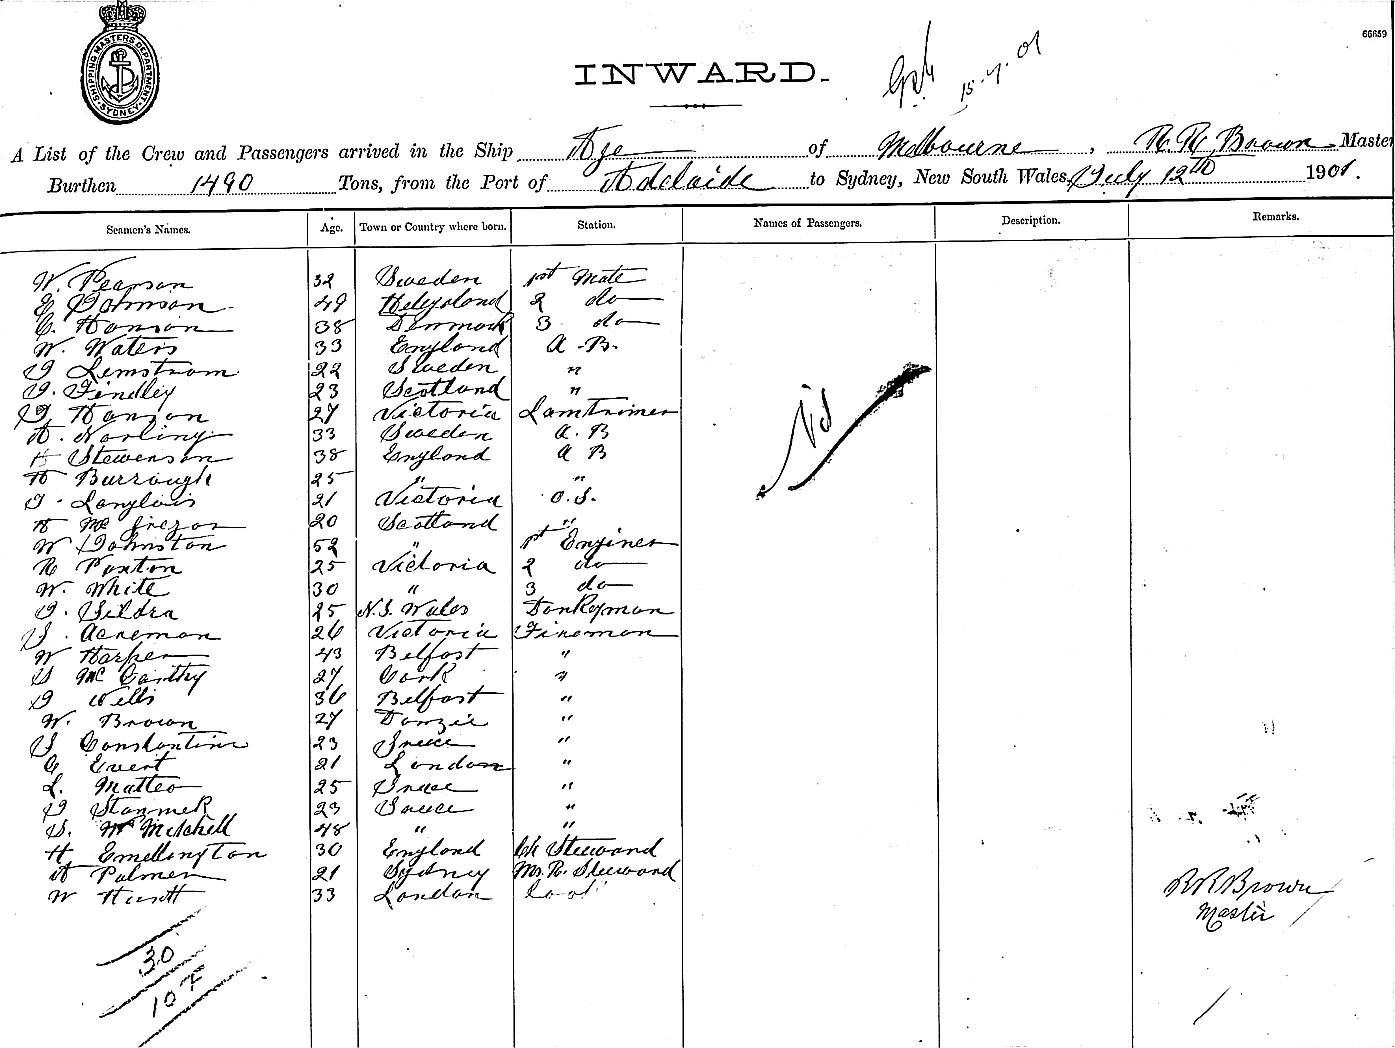 SHIPPING MASTERS DEPARTMENT SYDNEY
66659
INWARD.
15.7.01
A List of the Crew and Passengers arrived in the Ship Age of Melbourne, R. R. Brown Master
Burthen 1490 Tons, from the Port of Adelaide to Sydney, New South Wales, July 12th 1901.
Seamen's Names. Age. Town or Country where born. Station. Names of Passengers. Description. Remarks.
W. Pearson 32 Sweden 1st Mate
E Johnson 49 Heligoland 2 do
C. Hanson 38 Denmark 3 do
W. Waters 33 England A.B.
Lemstrom 22 Sweden "
Findley 23 Scotland "
Hanson 27 Victoria Lamtrimer
A. Norling 33 Sweden A.B
H Stevenson 38 England A B
H Burrough 25 " "
Langlois 21 Victoria O.S.
H Mc Gregor 20 Scotland "
W Johnston 52 " 1st Engineer
R Paxton 25 Victoria 2 do
W. White 30 " 3 do
25 N.S. Wales Donkeyman
Acreman 26 Victoria Fireman
W Harper 43 Belfast "
Mc Carthy 27 Cork "
Wells 36 Belfast "
W. Brown 27 Danzic "
Constantine 23 Greece "
C Evert 21 London "
L. Matteo 25 Greece "
23 Greece "
Mitchell 48 " "
H. Emellington 30 England Ch Steward
A Palmer 21 Sydney Ms. R. Steward
W 33 London Cook
Nil
R R Brown
Master
30
107